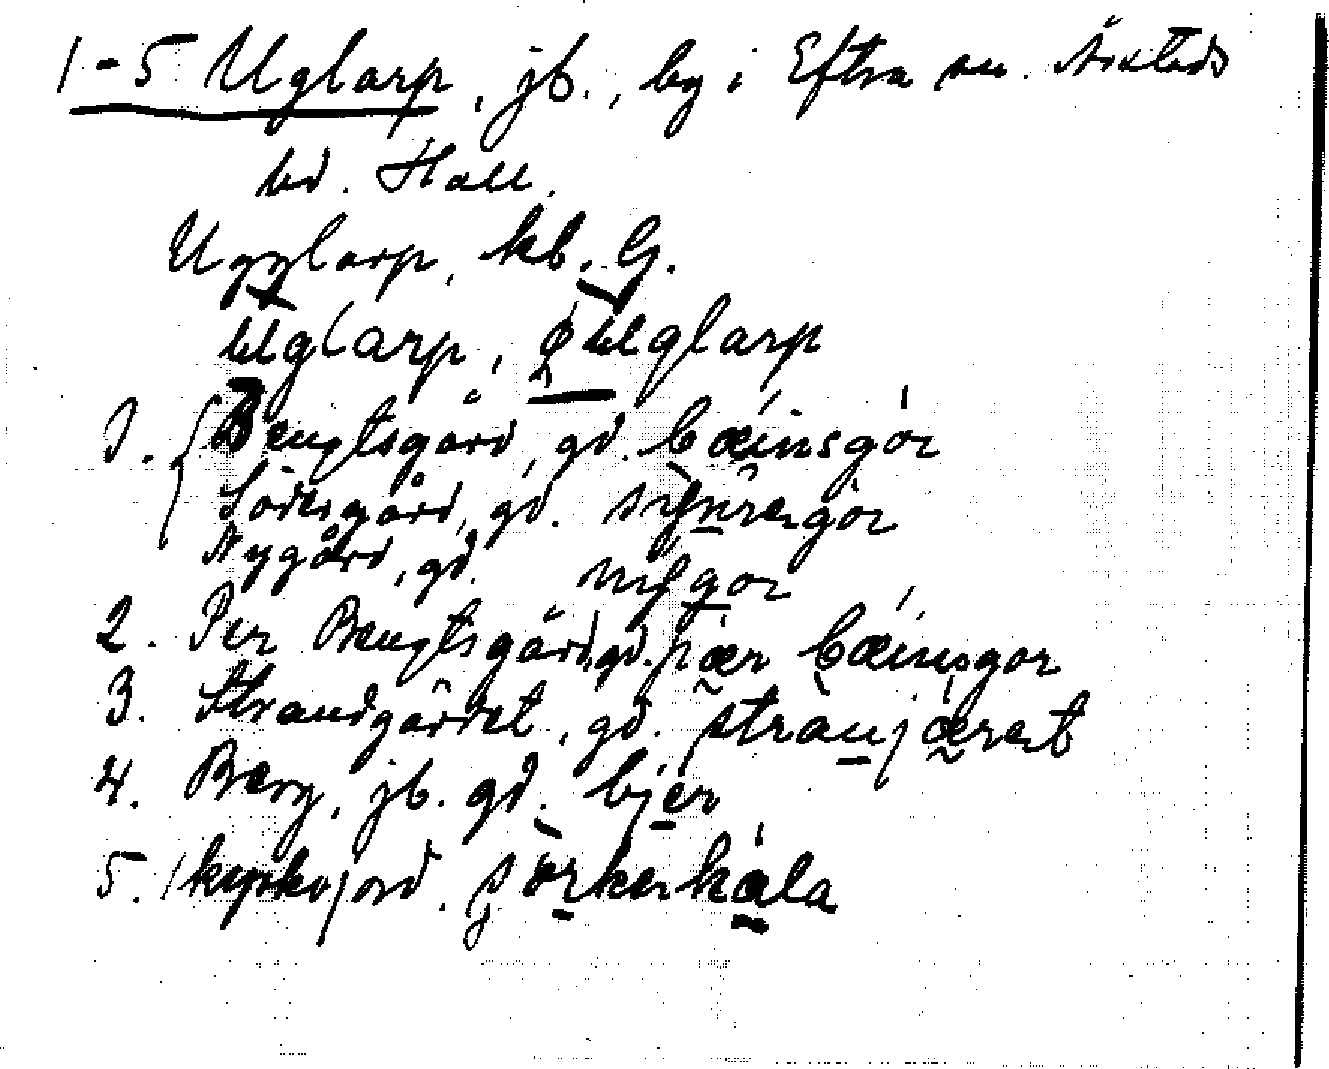 1-5 Uglarp, jb., by i Eftra sn. Årstads
hd. Hall.
Ugglarp, kb. G.
uglarp, uglarp
1. { Bengtsgård, gd. bæinsgor
Södergård, gd.
Nygård, gd. nygor
2. Per Bengtsgård, gd. pær bæinsgor
3. Strandgärdet, gd. stranjæret
4. Berg, jb. gd. bjer
5. kyrkojord.